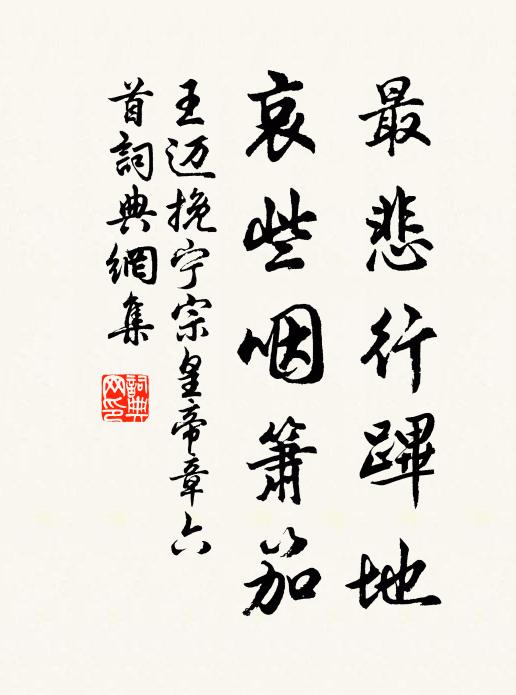 最悲行蹕地
哀些咽箫笳
王迈挽宁宗皇帝章六
首詞典網集
詞典
网印